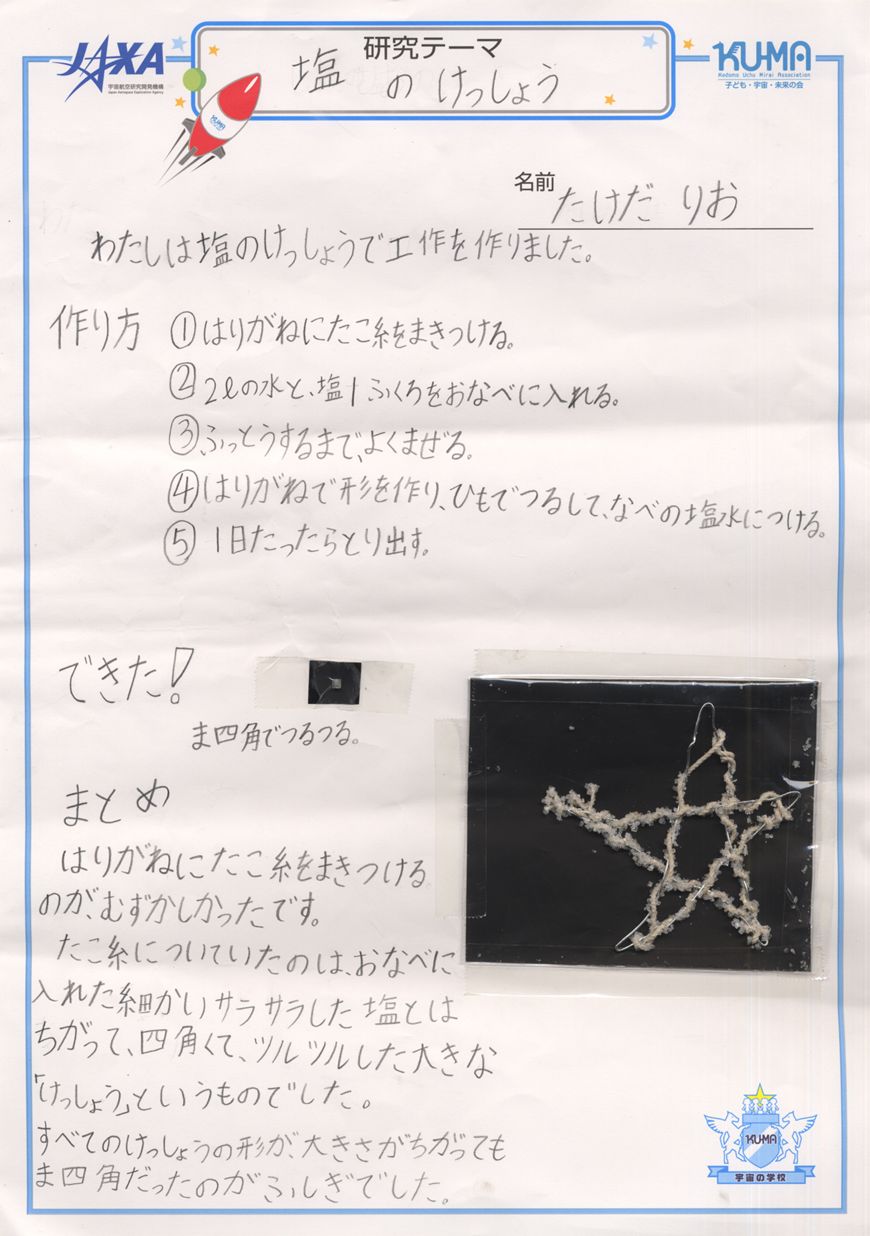 JAXA
宇宙航空研究開発機構
Japan Aerospace Exploration Agency
研究テーマ
塩のけっしょう
KU-MA
Kodomo Uchu Mirai Association
子ども・宇宙・未来の会
KU-MA
名前 たけだ りお
わたしは塩のけっしょうで工作を作りました。
作り方 ①はりがねにたこ糸をまきつける。
②2ℓの水と、塩1ふくろをおなべに入れる。
③ふっとうするまで、よくまぜる。
④はりがねで形を作り、ひもでつるして、なべの塩水につける。
⑤1日たったらとり出す。
できた!
ま四角でつるつる。
まとめ
はりがねにたこ糸をまきつける
のが、むずかしかったです。
たこ糸についていたのは、おなべに
入れた細かいサラサラした塩とは
ちがって、四角くて、ツルツルした大きな
「けっしょう」というものでした。
すべてのけっしょうの形が、大きさがちがっても
ま四角だったのがふしぎでした。
KU-MA
宇宙の学校